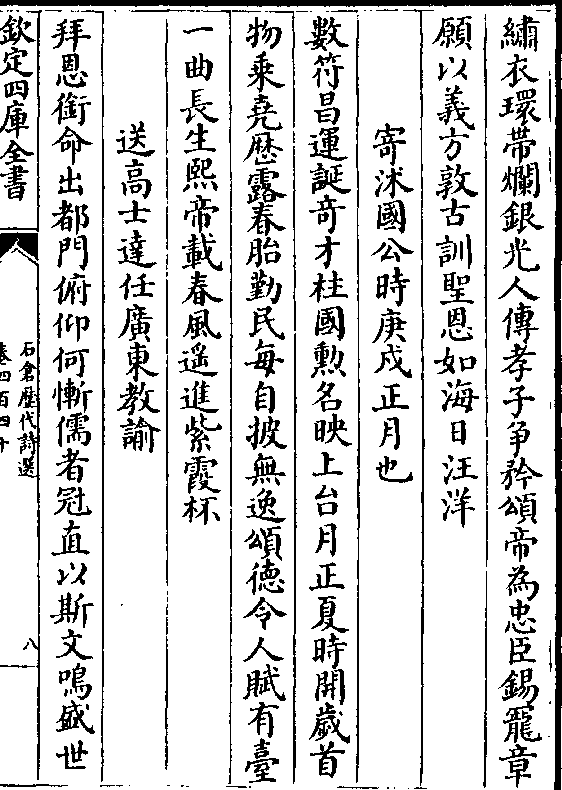 繡衣環帶爛銀光人傳孝子争矜頌帝為忠臣錫寵章
願以義方敦古訓聖恩如海日汪洋
寄沭國公時庚戍正月也
數符昌運誕奇才柱國勲名映上台月正夏時開歲首
物乘堯歴露春胎勤民每自披無逸頌德令人賦有臺
一曲長生熙帝載春風遥進紫霞杯
送高士達任廣東教諭
拜恩銜命出都門俯仰何慚儒者冠直以斯文鳴盛世
欽定四庫全書
石倉歴代詩選
卷四百四十
八